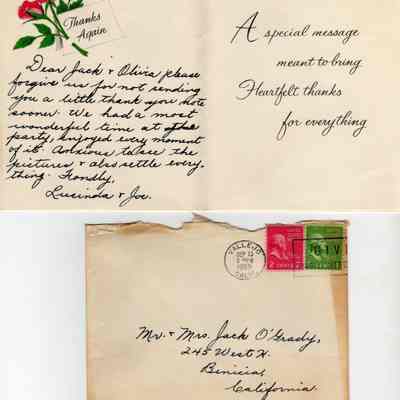 Thanks
Again
Dear Jack & Olivia please
forgive us for not sending
you a little thank you note
sooner. We had a most
wonderful time at the
party, enjoyed every moment
of it. Anxious to see the
pictures & also settle every-
thing. Fondly,
Lucinda & Joe.
A special message
meant to bring
Heartfelt thanks
for everything
VALLEJO
SEP 13
CALIF.
2 CENTS 2
Mr. & Mrs. Jack O'Grady,
245 West K.
Benicia,
California.